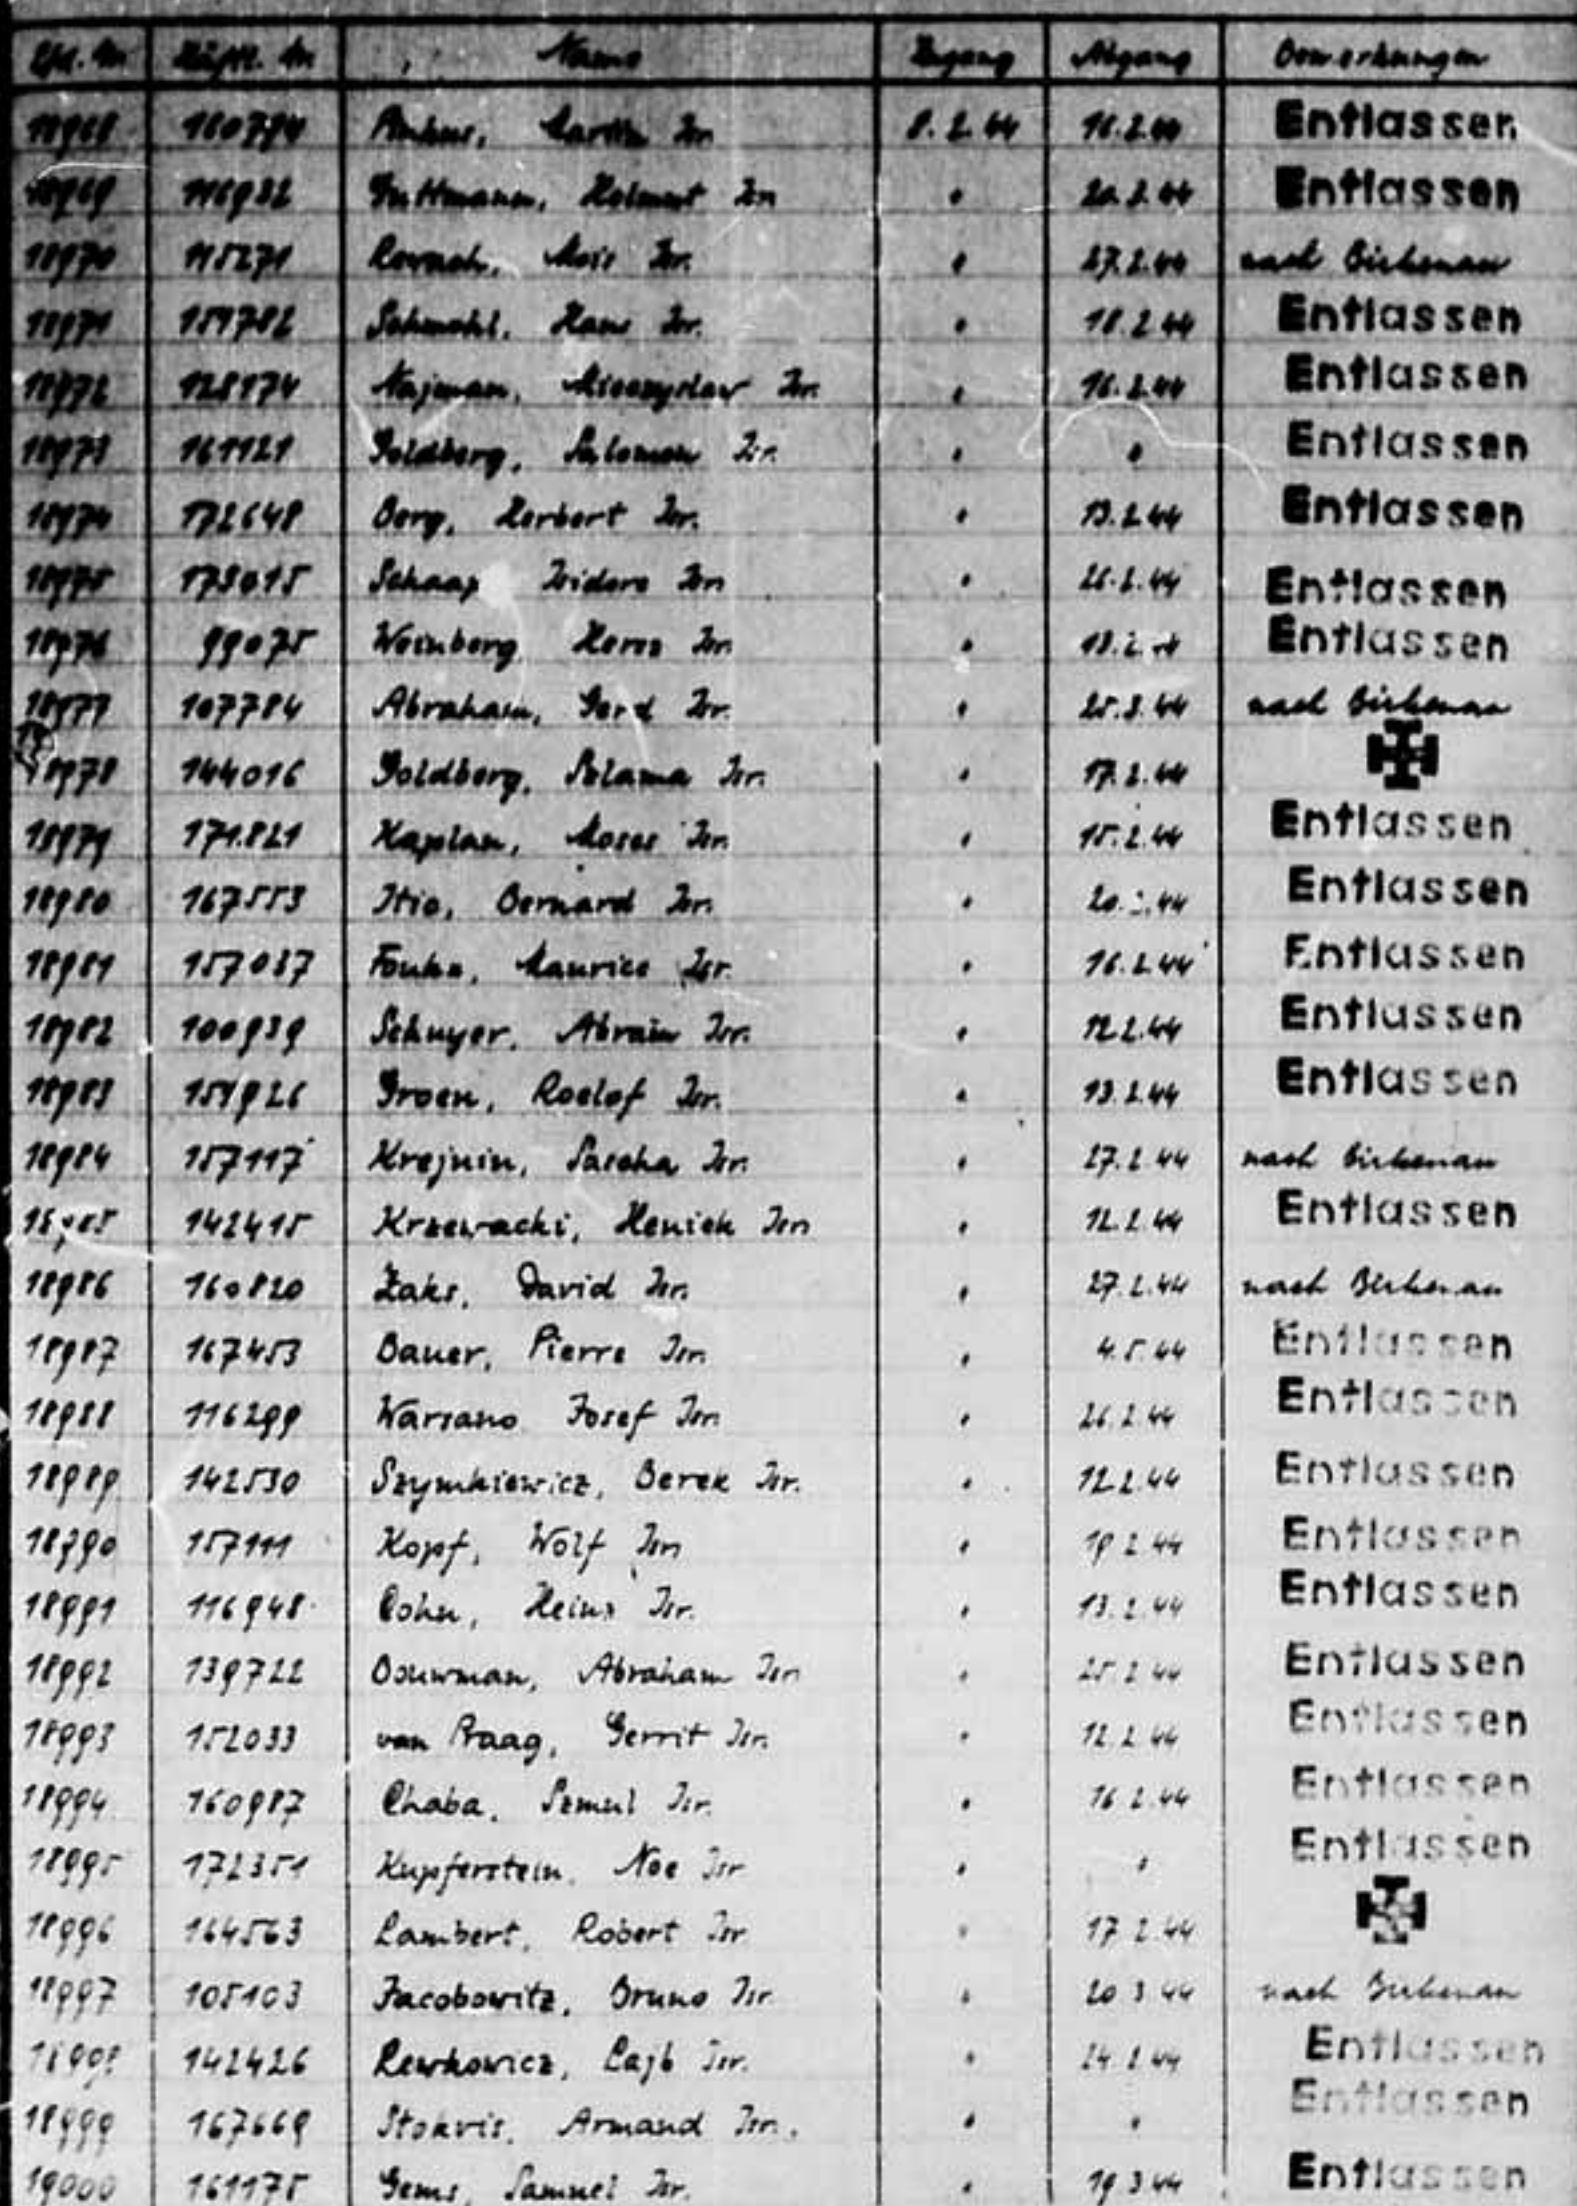 Lfd. Nr Häftl. Nr Name Zugang Abgang Bemerkungen
18968 160774 Isr. 8.2.44 16.2.44 Entlassen
18969 116932 Guttmann, Helmut Isr. " 20.2.44 Entlassen
18970 115271 Isr. " 27.2.44 nach Birkenau
18971 151782 Schmahl, Hans Isr. " 18.2.44 Entlassen
18972 128174 Najman, Mieczyslaw Isr. " 16.2.44 Entlassen
18973 161121 Goldberg, Salomon Isr. " " Entlassen
18974 172648 Berg, Herbert Isr. " 13.2.44 Entlassen
18975 173015 Schaap Isidore Isr. " 26.2.44 Entlassen
18976 99075 Weinberg Isr. " Entlassen
18977 107784 Abraham, Gerd Isr. " nach Birkenau
18978 144016 Goldberg, Szlama Isr. " 17.2.44
18979 171821 Kaplan, Moses Isr. " 15.2.44 Entlassen
18980 167553 Bernard Isr. " Entlassen
18981 157087 Maurice Isr. " 16.2.44 Entlassen
18982 100939 Schuyer, Abram Isr. " 12.2.44 Entlassen
18983 151926 Groen, Roelof Isr. " 13.2.44 Entlassen
18984 157117 Krejnin, Sascha Isr. " 27.2.44 nach Birkenau
18985 142415 Krzewacki, Heniek Isr. " 12.2.44 Entlassen
18986 160820 Zaks, David Isr. " 27.2.44 nach Birkenau
18987 167453 Bauer, Pierre Isr. " 4.5.44 Entlassen
18988 116299 Warsano Josef Isr. " 26.2.44 Entlassen
18989 142530 Szymkiewicz, Berek Isr. " 12.2.44 Entlassen
18990 157111 Kopf, Wolf Isr. " 19.2.44 Entlassen
18991 116948 Cohn, Heinz Isr. " 13.2.44 Entlassen
18992 139722 Bouwman, Abraham Isr. " 25.2.44 Entlassen
18993 152033 van Praag, Gerrit Isr. " 12.2.44 Entlassen
18994 160987 Chaba, Szmul Isr. " 16.2.44 Entlassen
18995 172351 Kupferstein, Noe Isr. " " Entlassen
18996 164563 Lambert, Robert Isr. " 17.2.44
18997 105103 Jacobowitz, Bruno Isr. " 20.3.44 nach Birkenau
18998 142426 Lewkowicz, Lajb Isr. " 24.2.44 Entlassen
18999 167669 Stokvis, Armand Isr. " " Entlassen
19000 161175 Gems, Samuel Isr. " 19.3.44 Entlassen